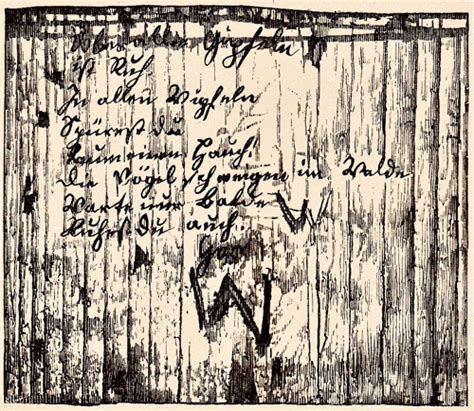 Über allen Gipfeln
ist Ruh
In allen Wipfeln
Spürest du
Kaum einen Hauch!
die Vögel schweigen im Walde
Warte nur Balde W
Ruhest du auch.
W